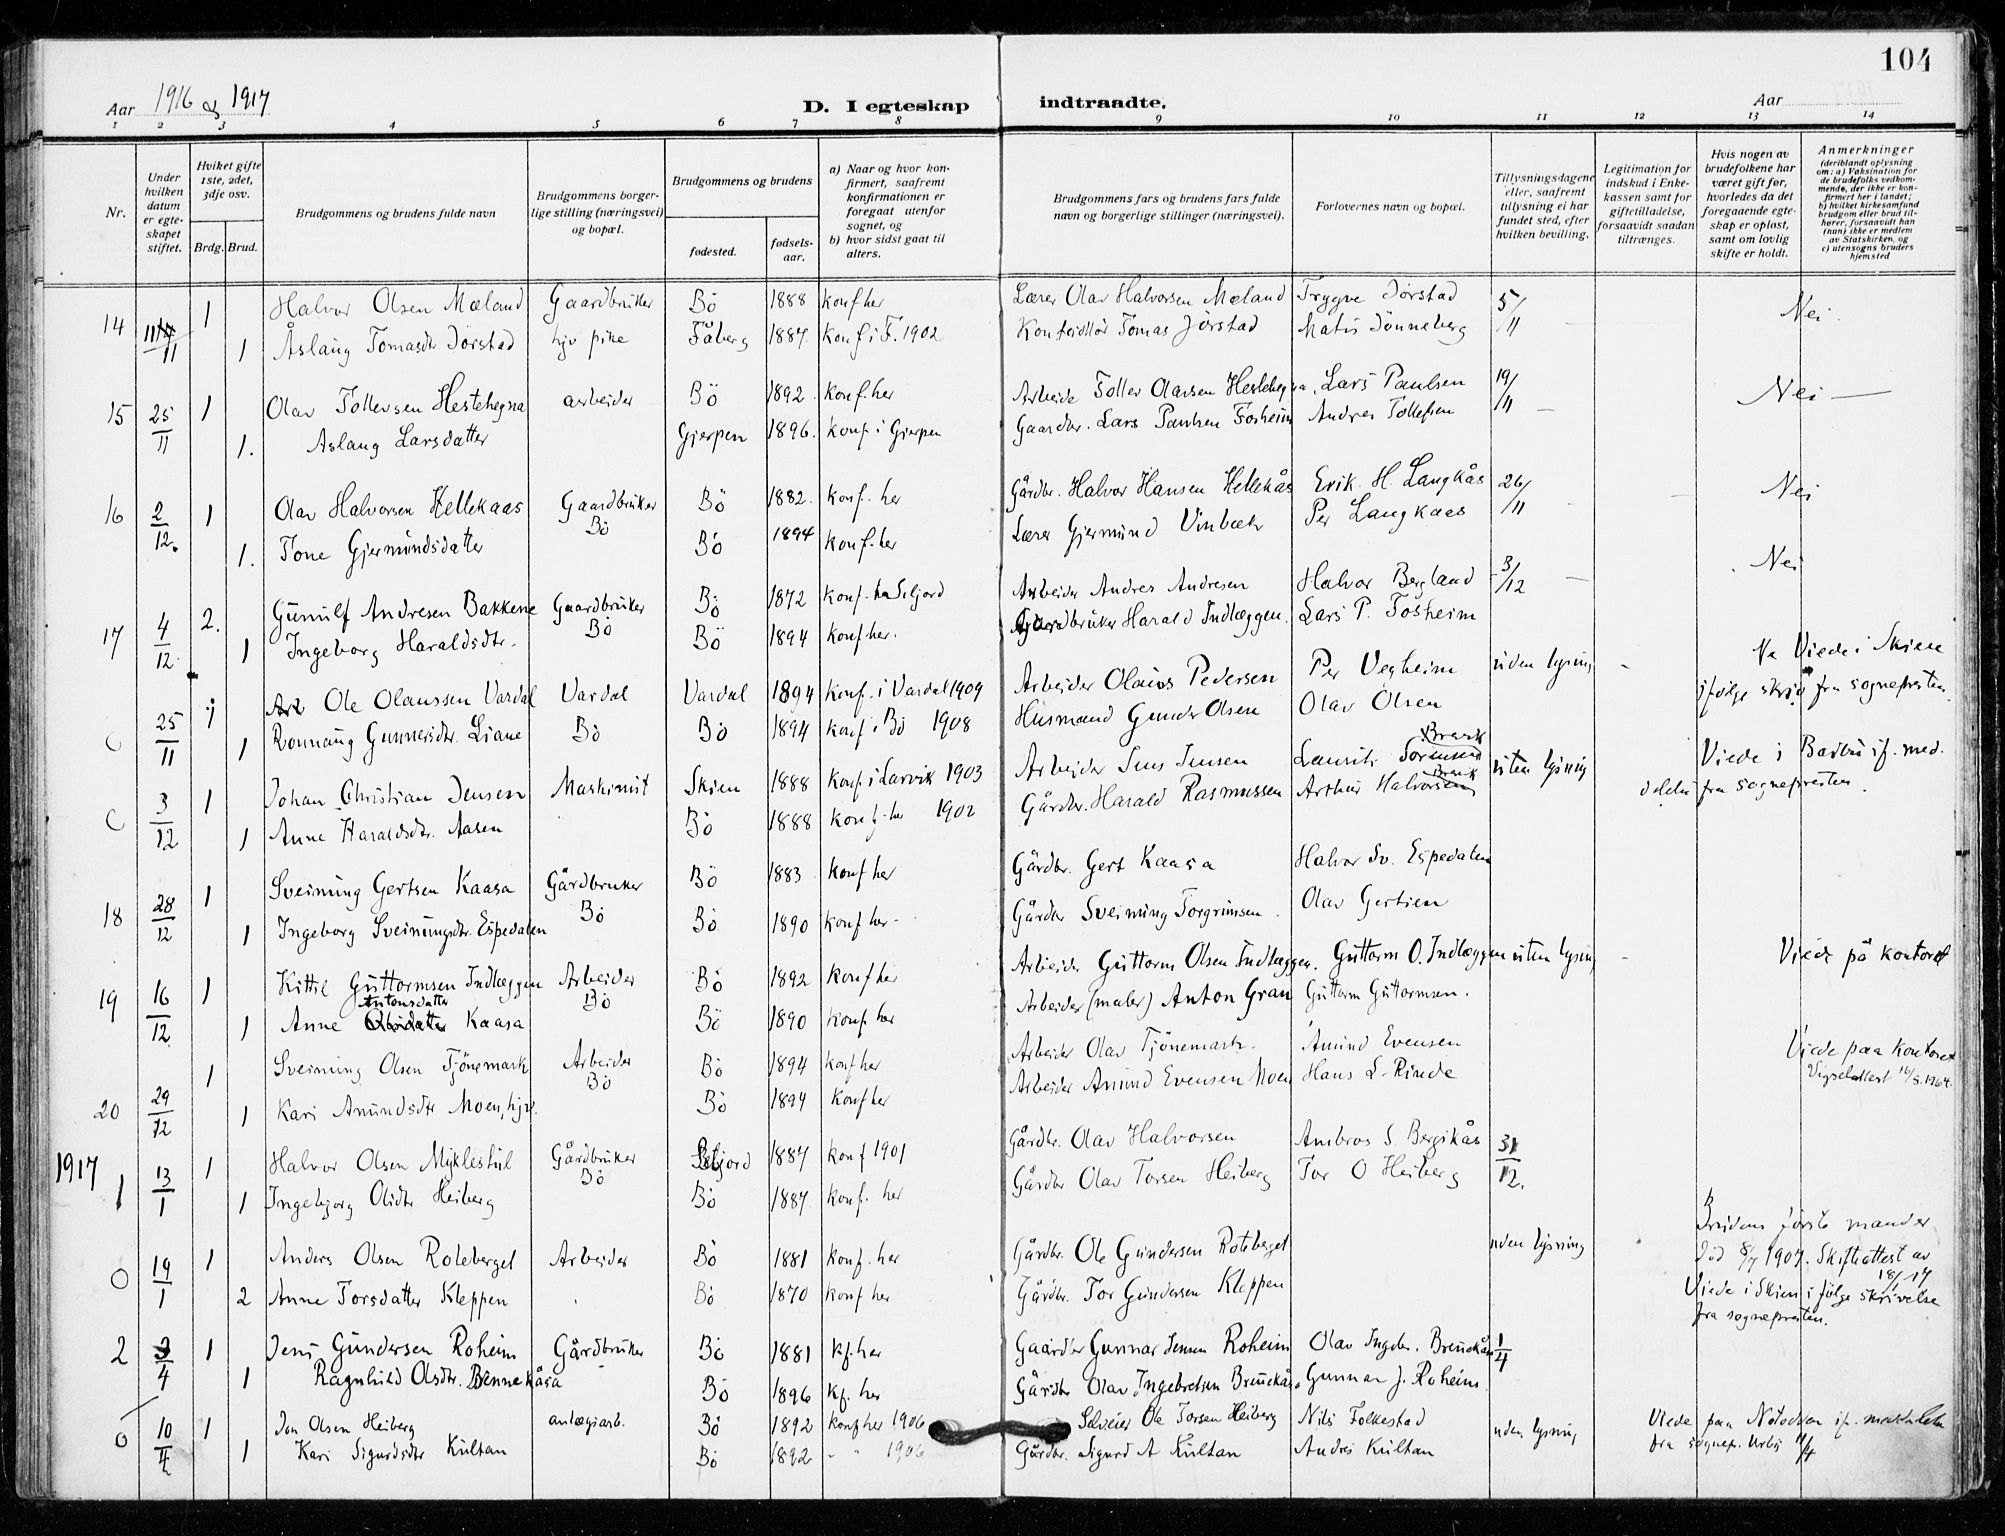 104
Aar 1916 & 1917
D. I egteskap indtraadte.
Aar
1 2 3 4 5 6 7 8 9 10 11 12 13 14
Nr.
Under hvilken datum er egteskapet stiftet.
Hviket gifte 1ste, 2det, 3dje osv.
Brdg. Brud.
Brudgommens og brudens fulde navn
Brudgommens borgerlige stilling (næringsvei) og bopæl.
Brudgommens og brudens
fødested.
fødselsaar.
a) Naar og hvor konfirmert, saafremt konfirmationen er foregaat utenfor sognet, og
b) hvor sidst gaat til alters.
Brudgommens fars og brudens fars fulde navn og borgerlige stillinger (næringsvei).
Forlovernes navn og bopæl.
Tillysningsdagene eller, saafremt tillysning ei har fundet sted, efter hvilken bevilling.
Legitimation for indskud i Enkekassen samt for giftetilladelse, forsaavidt saadan tiltrænges.
Hvis nogen av brudefolkene har været gift før, hvorledes da det foregaaende egteskap er opløst, samt om lovlig skifte er holdt.
Anmerkninger (deriblandt oplysning om: a) Vaksination for de brudefolks vedkommende, der ikke er konfirmert her i landet; b) hvilket kirkesamfund brudgom eller brud tilhører, forsaavidt han (hun) ikke er medlem av Statskirken, og c) utensogns bruders hjemsted
14 11 1 Halvor Olsen Mæland Gaardbruker Bö 1888 konf her Lærer Olav Halvorsen Mæland Trygve Jørstad 5/11 Nei.
1 Åslaug Tomasdtr Jørstad hjv pike Fåberg 1887. Konf i F. 1902 Tomas Jørstad
15 25/11 1 Olav Tollevsen Hestehegna arbeider Bö 1892 konf. her Arbeide Tollev Olavsen Hestehegna. Lars Paulsen 19/11 Nei —
1. Aslaug Larsdatter Gjerpen 1896. konf i Gjerpen Gaardbr. Lars Paulsen Fosheim Andres Tollefsen
16 2/12. 1 Olav Halvorsen Hellekaas Gaardbruker Bö Bö 1882. konf. her Gårdbr. Halvor Hansen Hellekås Erik H. Langkås 26/11 Nei
1. Tone Gjermundsdatter Bö 1894 konf. her Lærer Gjermund Vinbæk Per Langkaas
17 4/12. 2. Gunulf Andresen Bakkene Gaardbruker Bö Bö 1872 konf. Seljord Arbeider Andres Andresen Halvor Bergland 3/12 Nei
1 Ingeborg Haraldsdtr. Bö 1894 konf her. Gaardbruker Harald Indlæggen. Lars P. Fosheim
25/11 1 Ole Olaussen Vardal Vardal Vardal 1894 konf. i Vardal 1909 Arbeider Olaus Pedersen Per Vegheim uden lysning Viede i Skien
1 Ronnaug Gunnersdtr. Liane Bö Bö 1894 konf i Bö 1908 Husmand Gunder Olsen Olav Olsen ifølge skriv fra sognepresten.
3/12 1 Johan Christian Jensen Maskinist Skien 1888 konf i Larvik 1903 Arbeider Jens Jensen uten lysning Viede i Barbu if. med.
1 Anne Haraldsdtr. Aasen Bö 1888 konf. her 1902 Gårdbr. Harald Rasmussen Arthur Halvorsen delelse fra sognepresten.
18 28/12 1 Sveinung Gertsen Kaasa Gårdbruker Bö Bö 1883 konf her Gårdbr. Gert Kaasa Halvor Sv. Espedalen
1 Ingeborg Sveinungsdtr. Espedalen Bö 1890 konf her Gårdbr Sveinung Torgrimsen. Olav Gertsen
19 16/12 1 Kittil Guttormsen Indlæggen Arbeider Bö Bö 1892 konf her Arbeider Guttorm Olsen Indlæggen. Guttorm O. Indlæggen uten lysning Viede på kontoret
1 Anne Antonsdatter Kaasa Bö 1890 konf. her Arbeider (maler) Anton Gran Guttorm Guttormsen.
20 29/12 1 Sveinung Olsen Tjönemark Arbeider Bö Bö 1894 konf her Arbeider Olav Tjönemark. Amund Evensen Viede paa kontoret
1 Kari Amundsdtr Moen, hjv. Bö 1894 konf her Arbeider Amund Evensen Moen Hans L. Rinde Vigselattest 16/5. 1964.
1917 1 13/1 1 Halvor Olsen Myklestul Gårdbruker Bö Seljord 1887 konf 1901 Gårdbr. Olav Halvorsen Ambros S. Bergikås 31/12.
1 Ingebjorg Olsdtr Heiberg Bö 1887. konf. her Gårdbr Olav Torsen Heiberg Tor O Heiberg
0 19/1 1 Anders Olsen Roleberget Arbeider Bö 1881 konf. her Gårdbr. Ole Gundersen Roleberget uden lysning Brudens første mand er
2 Anne Torsdatter Kleppen Bö 1870 konf her Gårdbr. Tor Gundersen Kleppen død 8/7 1907. Skifteattest av 18/1 17
Viede i Skien i følge skrivelse fra sognepresten.
2 3/4 1 Jens Gundersen Roheim Gårdbruker Bö 1881 kf. her Gaardbr Gunnar Jensen Roheim Olav Ingebr. Brenekåsa 1/4
1 Ragnhild Olsdtr. Bennekåsa Bö 1896 kf. her Gårdbr Olav Ingebretsen Brenekåsa Gunnar J. Roheim.
0 10/4 1 Jon Olsen Heiberg anlægsarb. Bö 1892 konf her 1906 Selveier Ole Torsen Heiberg Nils Folkestad uden lysning Viede paa Notodden if. meddelelse
1 Kari Sigurdsdtr Kultan Bö 1892 - " 1906 Gårdbr. Sigurd A Kultan Andres Kultan fra sognepr. Urbÿ 11/4